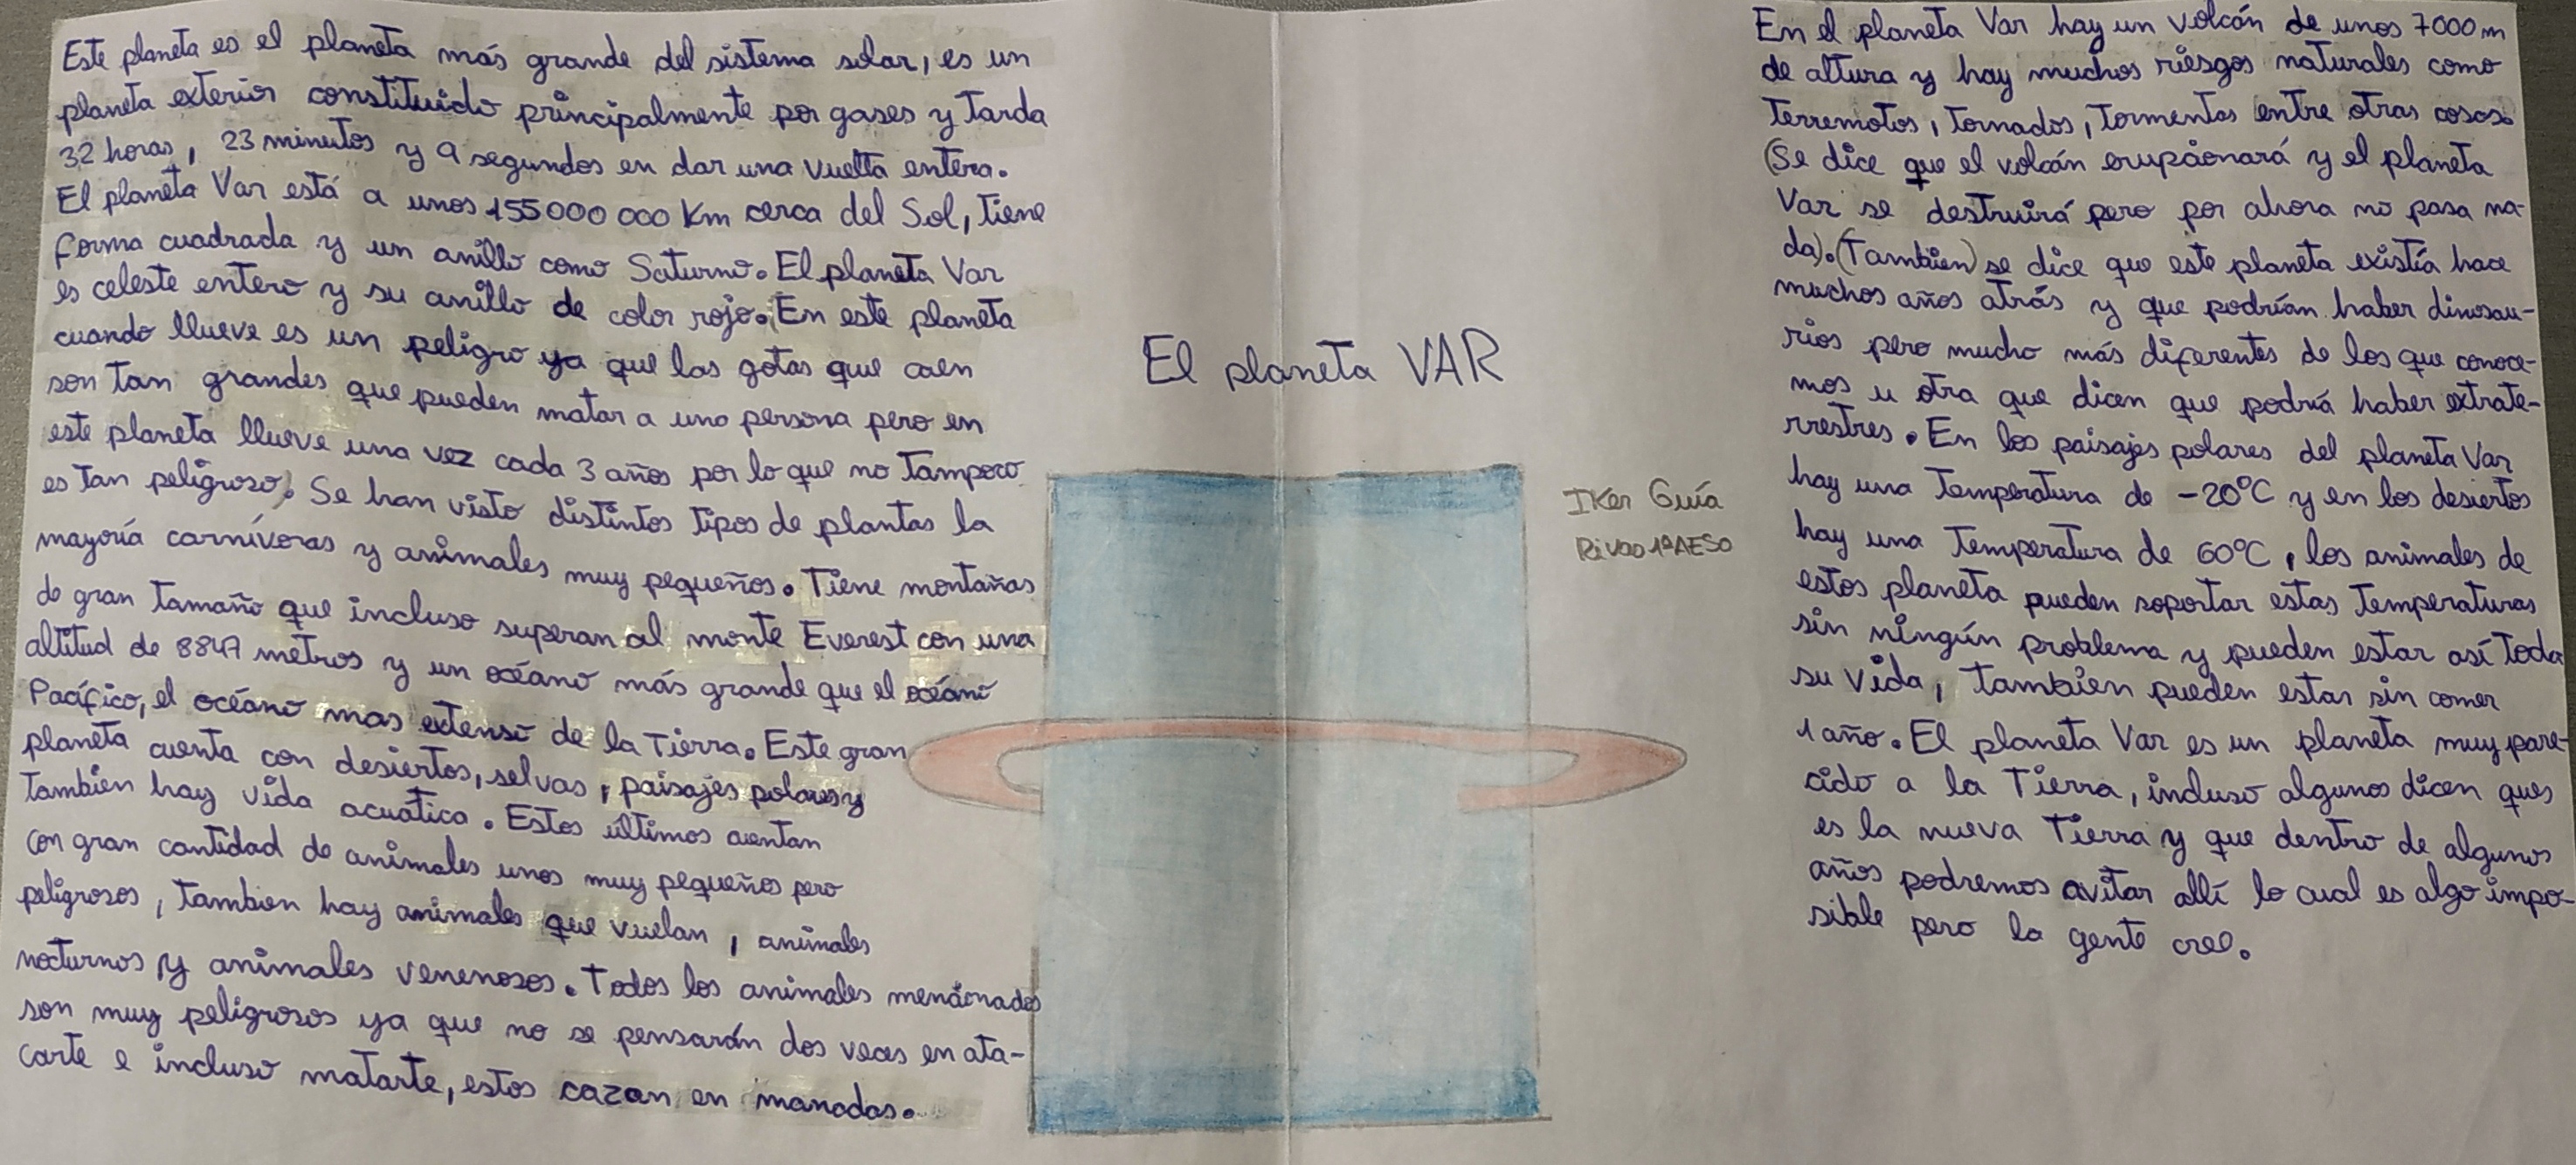 Este planeta es el planeta más grande del sistema solar, es un
planeta exterior constituido principalmente por gases y Tarda
32 horas, 23 minutos y 9 segundos en dar una vuelta entera.
El planeta Var está a unos 155000 000 Km cerca del Sol, Tiene
forma cuadrada y un anillo como Saturno. El planeta Var
es celeste entero y su anillo de color rojo. En este planeta
cuando llueve es un peligro ya que las gotas que caen
son Tan grandes que pueden matar a una persona pero en
este planeta llueve una vez cada 3 años por lo que no Tampoco
es Tan peligroso. Se han visto distintos Tipos de plantas la
mayoría carnívoras y animales muy pequeños. Tiene montañas
de gran Tamaño que incluso superan al monte Everest con una
altitud de 8849 metros y un océano más grande que el océano
Pacífico, el océano mas extenso de la Tierra. Este gran
planeta cuenta con desiertos, selvas, paisajes polares y
Tambien hay vida acuatica. Estos últimos cuentan
con gran cantidad de animales unos muy pequeños pero
peligrosos, Tambien hay animales que vuelan, animales
nocturnos y animales venenosos. Todos los animales mencionados
son muy peligrosos ya que no se pensarán dos veces en ata-
carte e incluso matarte, estos cazan en manadas.
El planeta VAR
IKer Guía
Rivas 1ºAESO
En el planeta Var hay un volcán de unos 7000 m
de altura y hay muchos riesgos naturales como
Terremotos, Tornados, Tormentas entre otras cosas.
(Se dice que el volcán erupcionará y el planeta
Var se destruirá pero por ahora no pasa na-
da). (Tambien) se dice que este planeta existía hace
muchos años atrás y que podrían haber dinosau-
rios pero mucho más diferentes de los que conoce-
mos u otra que dicen que podría haber extrate-
rrestres. En los paisajes polares del planeta Var
hay una Temperatura de -20ºC y en los desiertos
hay una Temperatura de 60ºC, los animales de
estos planeta pueden soportar estas Temperaturas
sin ningún problema y pueden estar así Toda
su vida, Tambien pueden estar sin comer
1 año. El planeta Var es un planeta muy pare-
cido a la Tierra, incluso algunos dicen ques
es la nueva Tierra y que dentro de algunos
años podremos avitar allí lo cual es algo impo-
sible pero la gente cree.